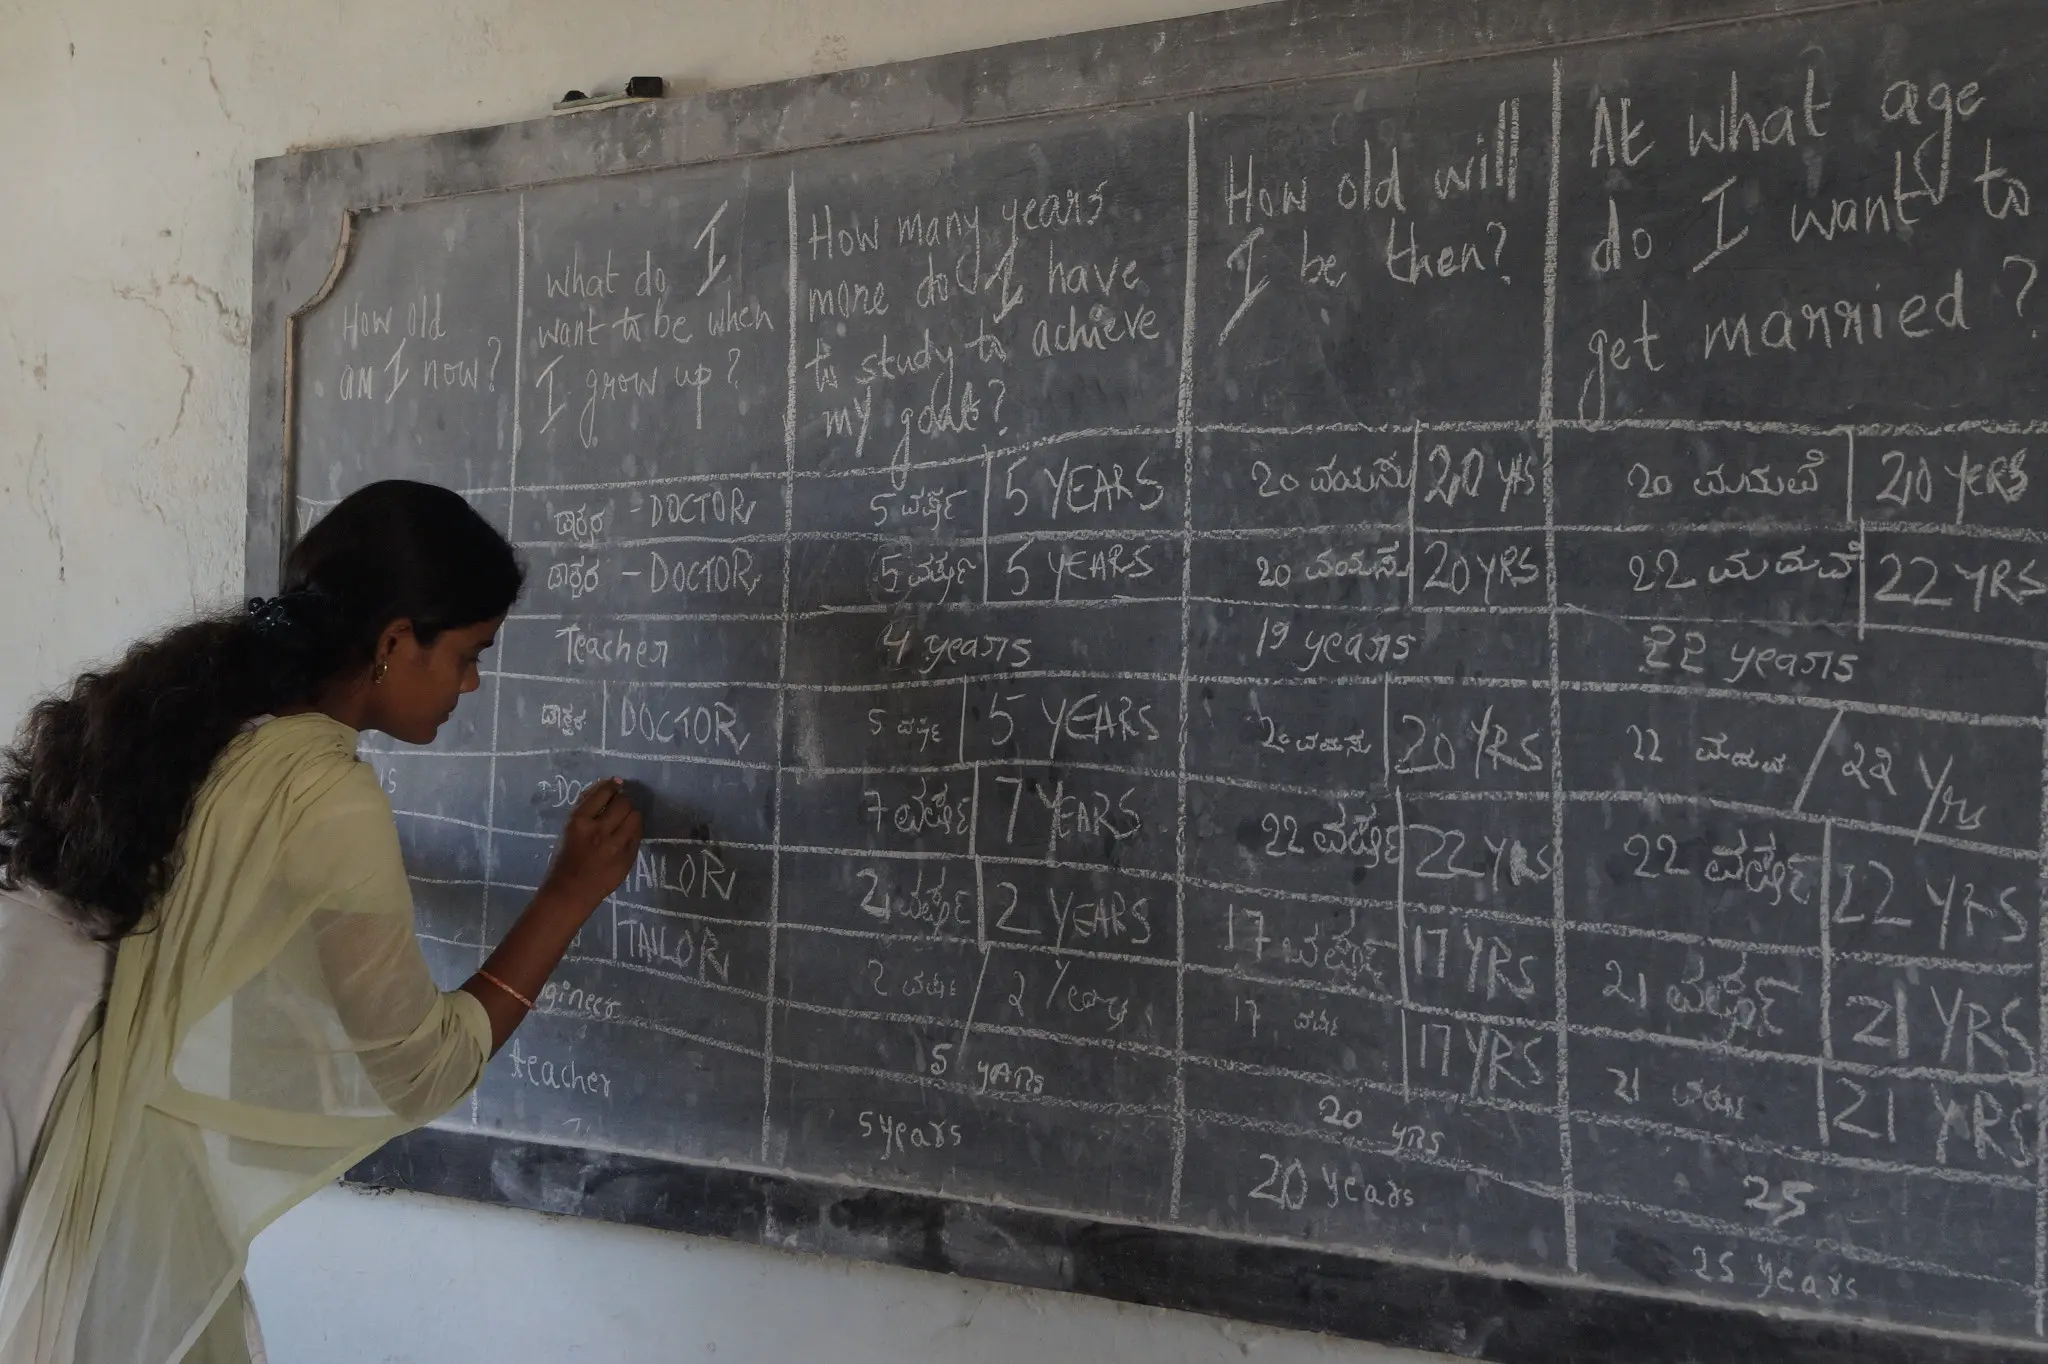 How old
am I now?
What do I
want to be when
I grow up?
How many years
more do I have
to study to achieve
my goal?
How old will
I be then?
At what age
do I want to
get married?
ಡಾಕ್ಟರ - DOCTOR
5 ವರ್ಷ
5 YEARS
20 ವಯಸು
20 YRS
20 ಮದುವೆ
20 YERS
ಡಾಕ್ಟರ - DOCTOR
5 ವರ್ಷ
5 YEARS
20 ವಯಸು
20 YRS
22 ಮದುವೆ
22 YRS
Teacher
4 years
19 years
22 years
ಡಾಕ್ಟರ
DOCTOR
5 ವರ್ಷ
5 YEARS
20 ವಯಸು
20 YRS
22 ಮದುವೆ
22 Yrs
15
7 ವರ್ಷ
7 YEARS
22 ವರ್ಷ
22 YRS
22 ವರ್ಷ
22 YRS
TAILOR
2 ವರ್ಷ
2 YEARS
17 ವರ್ಷ
17 YRS
21 ವರ್ಷ
21 YRS
TAILOR
2 ವರ್ಷ
2 Years
17 ವರ್ಷ
17 YRS
21 ವರ್ಷ
21 YRS
gineer
5 YARS
20 YRS
25
teacher
5 years
20 years
25 years